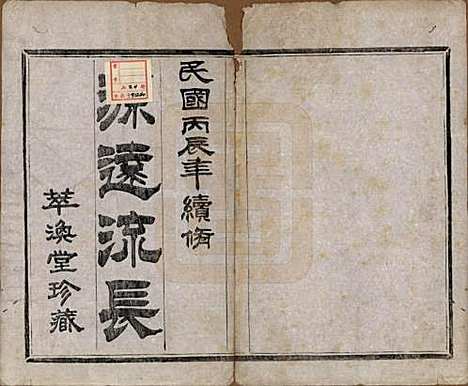 民國丙辰年續脩
源遠流長
萃渙堂珍藏